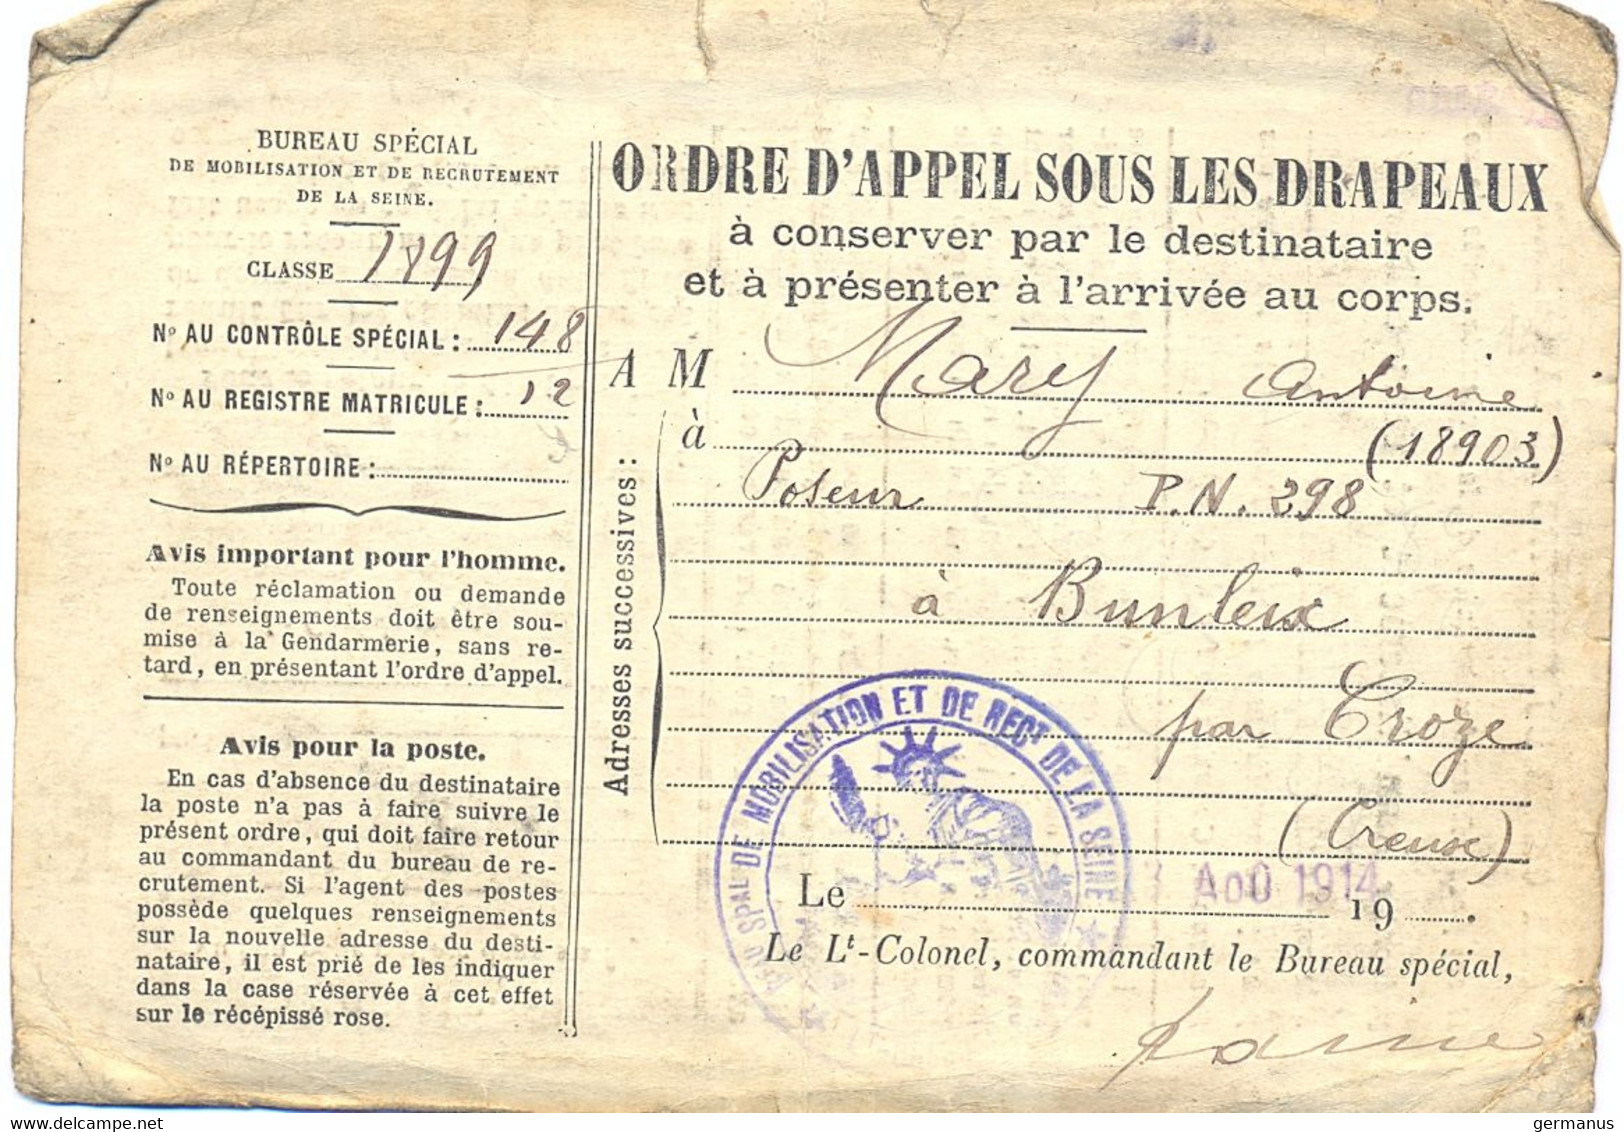 BUREAU SPÉCIAL
DE MOBILISATION ET DE RECRUTEMENT
DE LA SEINE.
CLASSE 1899
Nº AU CONTRÔLE SPÉCIAL : 148
Nº AU REGISTRE MATRICULE : 12
Nº AU RÉPERTOIRE :
Avis important pour l'homme.
Toute réclamation ou demande
de renseignements doit être sou-
mise à la Gendarmerie, sans re-
tard, en présentant l'ordre d'appel.
Avis pour la poste.
En cas d'absence du destinataire
la poste n'a pas à faire suivre le
présent ordre, qui doit faire retour
au commandant du bureau de re-
crutement. Si l'agent des postes
possède quelques renseignements
sur la nouvelle adresse du desti-
nataire, il est prié de les indiquer
dans la case réservée à cet effet
sur le récépissé rose.
ORDRE D'APPEL SOUS LES DRAPEAUX
à conserver par le destinataire
et à présenter à l'arrivée au corps.
A M Mary Antoine
à (18903)
Adresses successives :
Poseur P.N. 298
à Bunleix
par Croze
(Creuse)
DE MOBILISATION ET DE RECT DE LA SEINE
Le AOU 1914 19 .
Le Lt-Colonel, commandant le Bureau spécial,
germanus